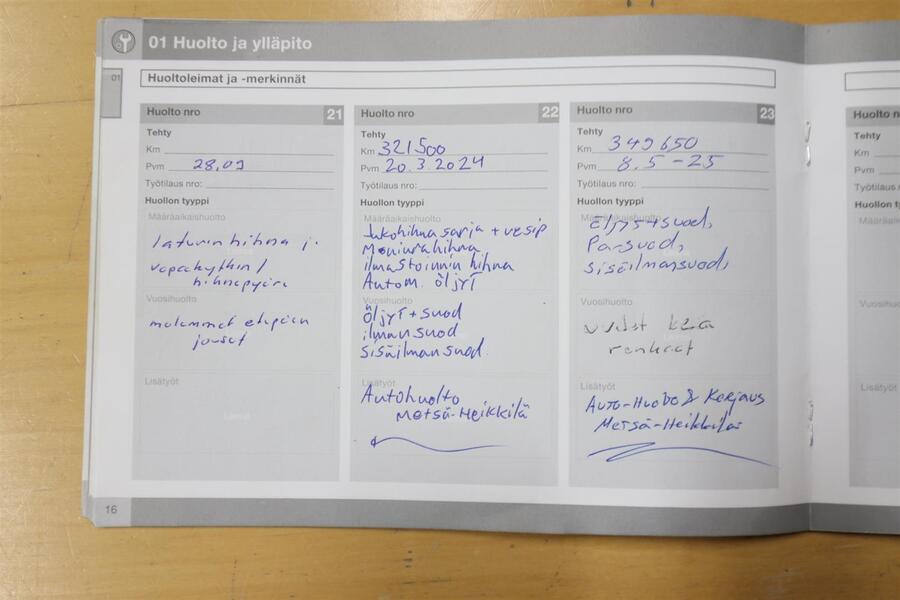 01 Huolto ja ylläpito
01
Huoltoleimat ja -merkinnät
Huolto nro 21
Tehty
Km
Pvm 28.09
Työtilaus nro:
Huollon tyyppi
Määräaikaishuolto
laturin hihna j.
vapakytkin /
hihnapyörä
Vuosihuolto
molemmat etupään
jouset
Lisätyöt
Huolto nro 22
Tehty
Km 321500
Pvm 20.3.2024
Työtilaus nro:
Huollon tyyppi
Määräaikaishuolto
Jakohihna sarja + vesip
Moniurahihna
ilmastoinnin hihna
Autom. öljyt
Vuosihuolto
Öljyt + suod
ilman suod
sisäilman suod.
Lisätyöt
Autohuolto
Metsä-Heikkilä
Huolto nro 23
Tehty
Km 349650
Pvm 8.5-25
Työtilaus nro:
Huollon tyyppi
Määräaikaishuolto
Öljyt+suod,
Pa-suod,
sisäilmansuod,
Vuosihuolto
uudet kesä
renkaat
Lisätyöt
Auto-Huolto & Korjaus
Metsä-Heikkilä
16
Huolto n
Tehty
Km
Pvm
Työtilaus
Huollon t
Määräaika
Vuosihuo
Lisätyö